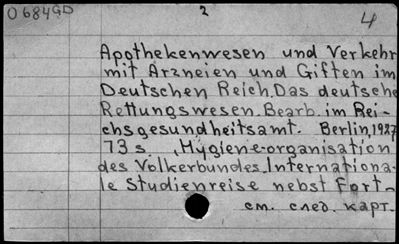 0684GD
2
4
Apothekenwesen und Verkehr
mit Arzneien und Giften im
Deutschen Reich. Das deutsche
Rettungswesen. Bearb. im Rei-
chsgesundheitsamt. Berlin, 1927
73 s. „Hygiene-organisation
des Völkerbundes. Internationa-
le Studienreise nebst Fort-
см. след. карт.